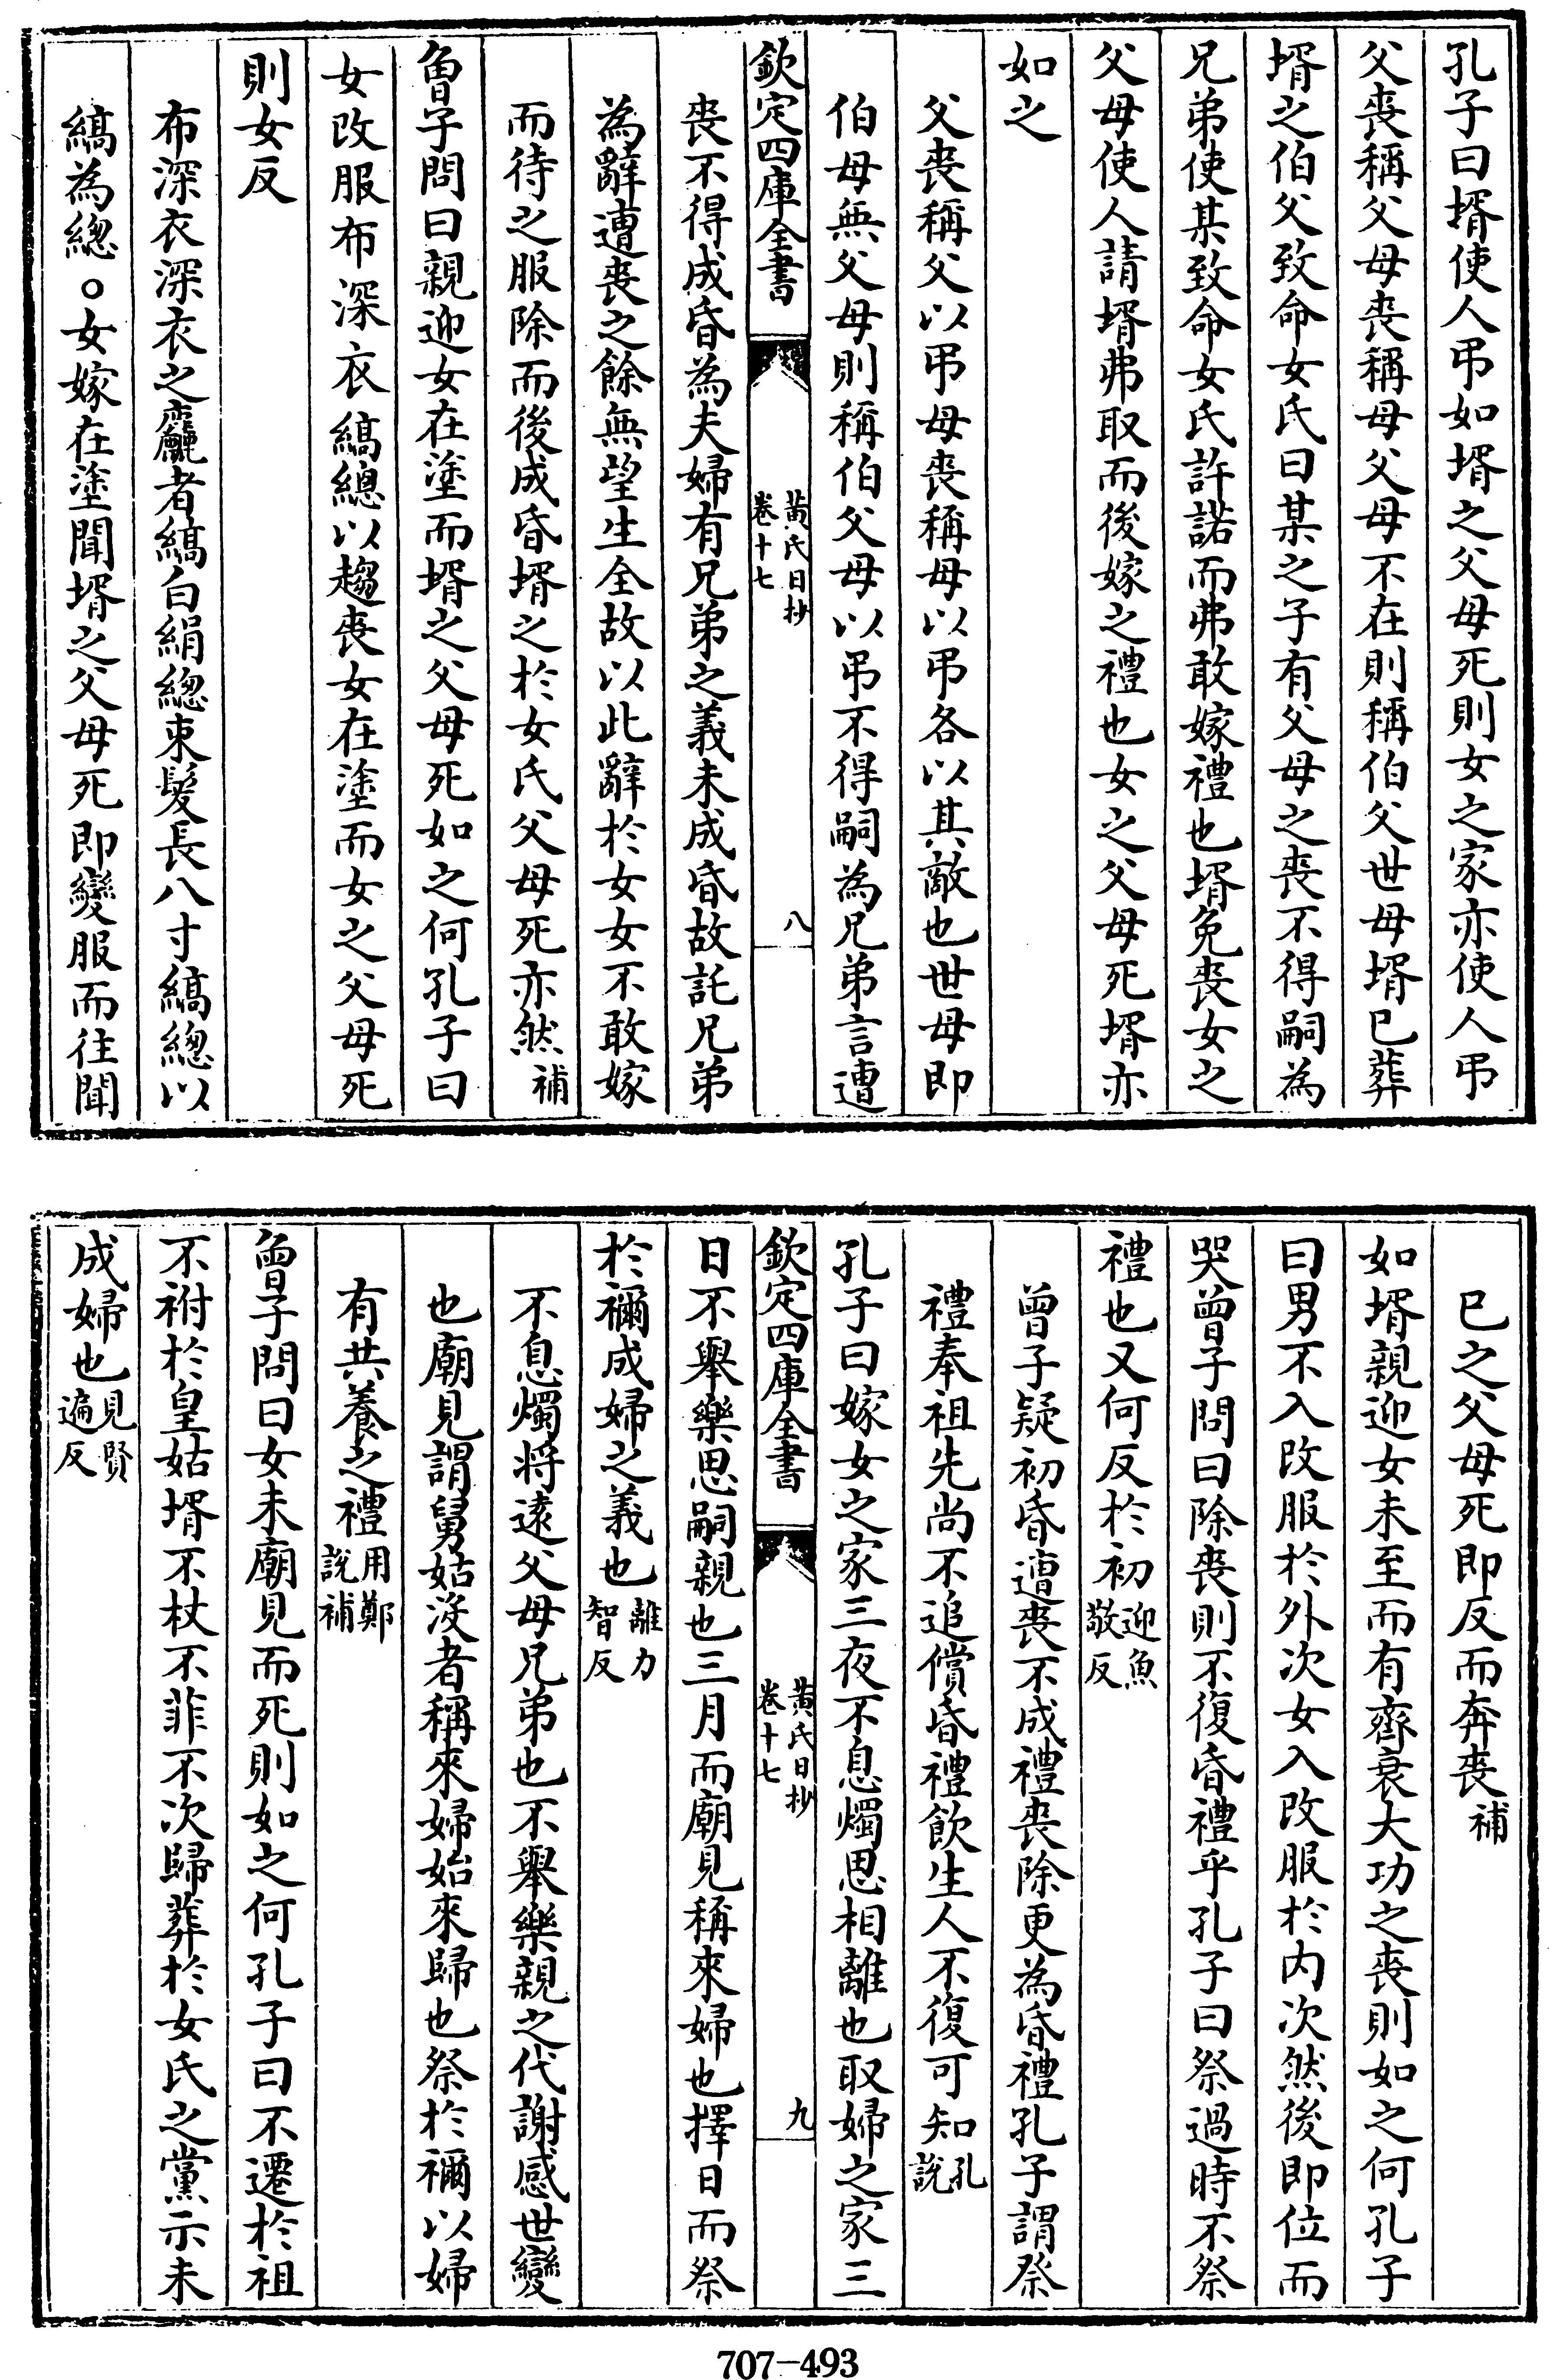 孔子曰壻使人弔如壻之父母死則女之家亦使人弔
父喪稱父母喪稱母父母不在則稱伯父世母壻已葬
壻之伯父致命女氏曰某之子有父母之喪不得嗣為
兄弟使某致命女氏許諾而弗敢嫁禮也壻免喪女之
父母使人請壻弗取而後嫁之禮也女之父母死壻亦
如之
父喪稱父以弔母喪稱母以弔各以其敵也世母即
伯母無父母則稱伯父母以弔不得嗣為兄弟言遭
欽定四庫全書
黃氏日抄
卷十七
八
喪不得成昏為夫婦有兄弟之義未成昏故託兄弟
為辭遭喪之餘無望生全故以此辭於女女不敢嫁
而待之服除而後成昏壻之於女氏父母死亦然補
曾子問曰親迎女在塗而壻之父母死如之何孔子曰
女改服布深衣縞總以趨喪女在塗而女之父母死
則女反
布深衣深衣之麤者縞白絹總束髮長八寸縞總以
縞為總○女嫁在塗聞壻之父母死即變服而往聞
已之父母死即反而奔喪補
如壻親迎女未至而有齊衰大功之喪則如之何孔子
曰男不入改服於外次女入改服於内次然後即位而
哭曾子問曰除喪則不復昏禮乎孔子曰祭過時不祭
禮也又何反於初迎魚
敬反
曾子疑初昏遭喪不成禮喪除更為昏禮孔子謂祭
禮奉祖先尚不追償昏禮飲生人不復可知孔
說
孔子曰嫁女之家三夜不息燭思相離也取婦之家三
欽定四庫全書
黃氏日抄
卷十七
九
日不舉樂思嗣親也三月而廟見稱來婦也擇日而祭
於禰成婦之義也離力
智反
不息燭將遠父母兄弟也不舉樂親之代謝感世變
也廟見謂舅姑沒者稱來婦始來歸也祭於禰以婦
有共養之禮用鄭
說補
曾子問曰女未廟見而死則如之何孔子曰不遷於祖
不祔於皇姑壻不杖不菲不次歸葬於女氏之黨示未
成婦也見賢
遍反
707-493